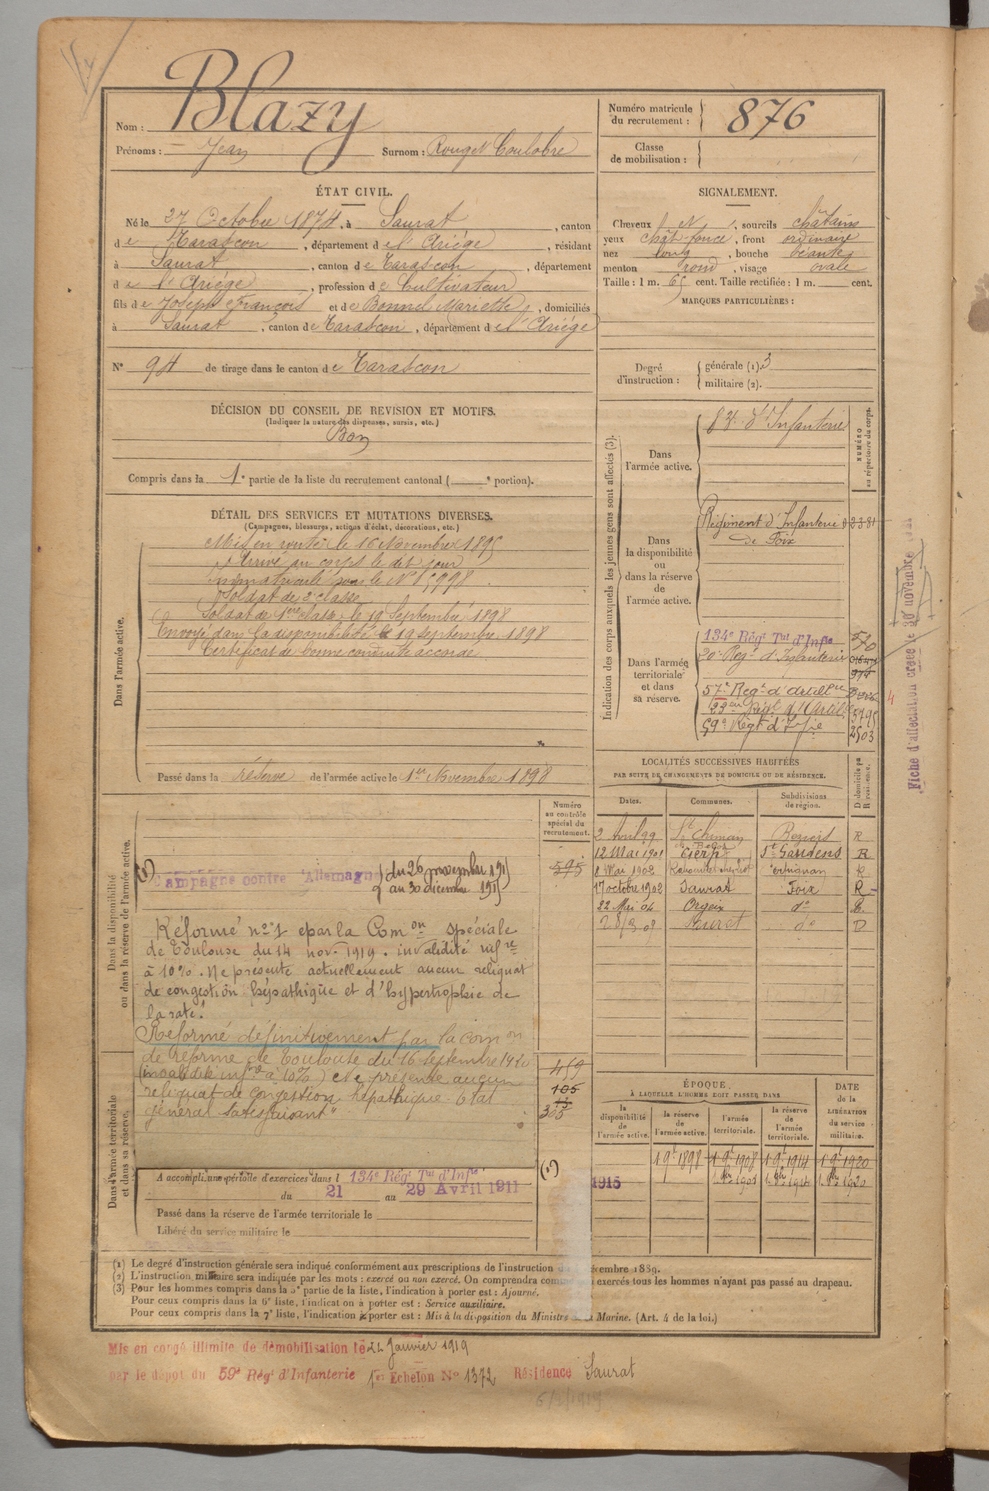 Blazy
Nom :
Prénoms : Jean Surnom : Rouget Coulobre
Numéro matricule du recrutement : 876
Classe de mobilisation :
ÉTAT CIVIL.
Né le 27 Octobre 1874, à Saurat, canton
de Tarascon, département de l'Ariège, résidant
à Saurat, canton de Tarascon, département
de l'Ariège, profession de Cultivateur
fils de Joseph François et de Bonnel Mariette, domiciliés
à Saurat, canton de Tarascon, département de l'Ariège
N° 94 de tirage dans le canton de Tarascon
SIGNALEMENT.
Cheveux et, sourcils châtains
yeux chât foncé, front ordinaire
nez long, bouche béante
menton rond, visage ovale
Taille : 1 m. 65 cent. Taille rectifiée : 1 m. cent.
MARQUES PARTICULIÈRES :
Degré d'instruction : générale (1). 3
militaire (2).
DÉCISION DU CONSEIL DE REVISION ET MOTIFS.
(Indiquer la nature des dispenses, sursis, etc.)
Bon
Compris dans la 1e partie de la liste du recrutement cantonal ( e portion).
DÉTAIL DES SERVICES ET MUTATIONS DIVERSES.
(Campagnes, blessures, actions d'éclat, décorations, etc.)
Dans l'armée active.
Mis en route le 16 Novembre 1895
Arrivé au corps le dit jour
immatriculé sous le N° 5998
Soldat de 2e classe
Soldat de 1ère classe le 19 Septembre 1898
Envoyé dans la disponibilité le 19 Septembre 1898
Certificat de bonne conduite accordé
Passé dans la réserve de l'armée active le 1er Novembre 1898
Indication des corps auxquels les jeunes gens sont affectés (3).
NUMÉRO au répertoire du corps.
Dans l'armée active.
83e d'Infanterie
Dans la disponibilité ou dans la réserve de l'armée active.
Régiment d'Infanterie
de Foix
Dans l'armée territoriale et dans sa réserve.
134e Régt Tal d'Infie 570
20e Régt d'Infanterie
974
57e Régt d'Artillie
23e Régt d'Artill. 5795
59e Régt d'Infie 2503
Fiche d'affectation créée le 30 novembre
4
LOCALITÉS SUCCESSIVES HABITÉES
PAR SUITE DE CHANGEMENTS DE DOMICILE OU DE RÉSIDENCE.
Dates. Communes. Subdivisions de région. D domicile ou R résidence.
2 Avril 99 St Chinian Béziers R
12 Mai 1901 Cierp St Gaudens R
8 Mai 1902 Perpignan R
17 octobre 1902 Saurat Foix R
22 Mai 04 Orgeix do R
Suret do D
Dans la disponibilité ou dans la réserve de l'armée active.
Numéro au contrôle spécial du recrutement.
595
(1) Campagne contre l'Allemagne du 26 novembre 1915
au 30 décembre 1915
Réformé n° 1 par la Comon spéciale
de Toulouse du 14 nov. 1919. invalidité infre
à 10%. Ne présente actuellement aucun reliquat
de congestion hépathique et d'hypertrophie de
la rate.
Réformé définitivement par la comon
de réforme de Toulouse du 16 septembre 1920
(invalidité infre à 10%) et ne présente aucun
reliquat de congestion hépathique. Etat
général satisfaisant"
459
105
Dans l'armée territoriale et dans sa réserve.
A accompli une période d'exercices dans l 134e Régt Tal d'Infie
du 21 au 29 Avril 1911
Passé dans la réserve de l'armée territoriale le
Libéré du service militaire le
ÉPOQUE
À LAQUELLE L'HOMME DOIT PASSER DANS
la disponibilité de l'armée active. la réserve de l'armée active. l'armée territoriale. la réserve de l'armée territoriale. DATE de la LIBÉRATION du service militaire.
1 9e 1898 1 9e 1908 1 9e 1914 1 9e 1920
1915
(1) Le degré d'instruction générale sera indiqué conformément aux prescriptions de l'instruction décembre 1889.
(2) L'instruction militaire sera indiquée par les mots : exercé ou non exercé. On comprendra comme exercés tous les hommes n'ayant pas passé au drapeau.
(3) Pour les hommes compris dans la 5e partie de la liste, l'indication à porter est : Ajourné.
Pour ceux compris dans la 6e liste, l'indication à porter est : Service auxiliaire.
Pour ceux compris dans la 7e liste, l'indication à porter est : Mis à la disposition du Ministre Marine. (Art. 4 de la loi.)
Mis en congé illimité de démobilisation le 22 Janvier 1919
par le dépôt du 59e Régt d'Infanterie 1er Echelon N° 1372 Résidence Saurat